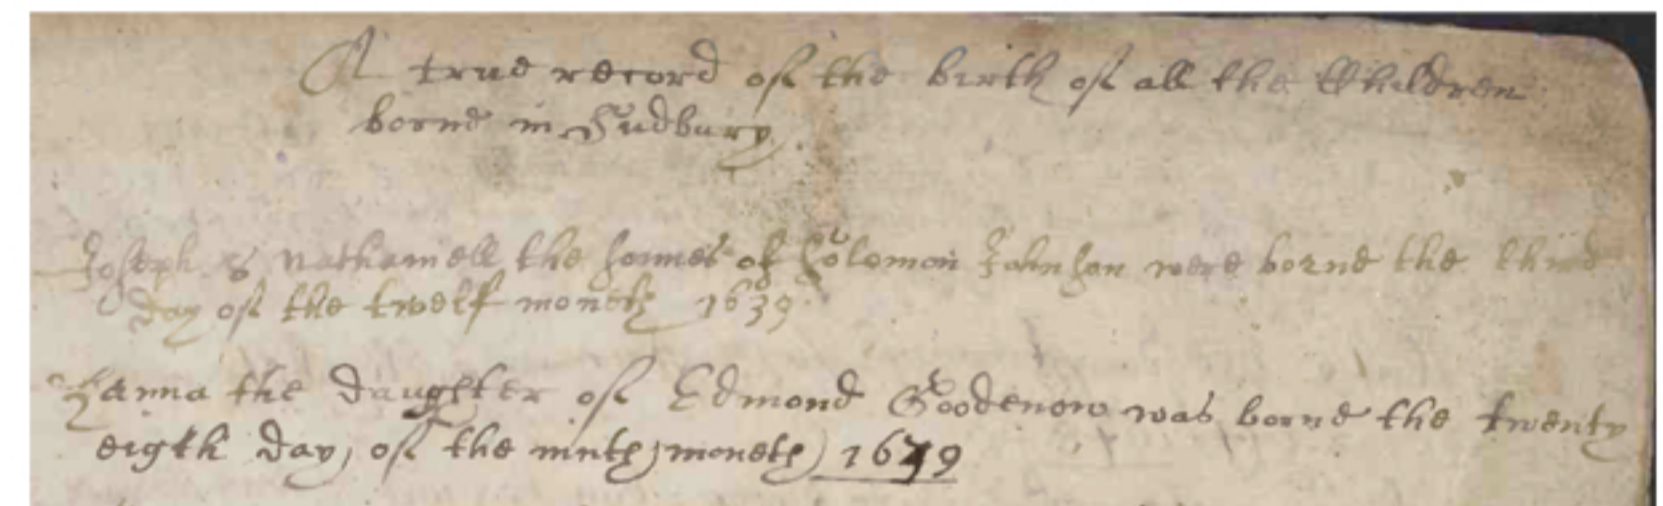 A true record of the birth of all the Children
borne in Sudbury.
Joseph & Nathaniell the sonnes of Solomon Johnson were borne the third
day of the twelf moneth 1639
Hanna the daughter of Edmond Goodenow was borne the twenty
eigth day, of the ninth moneth) 1639